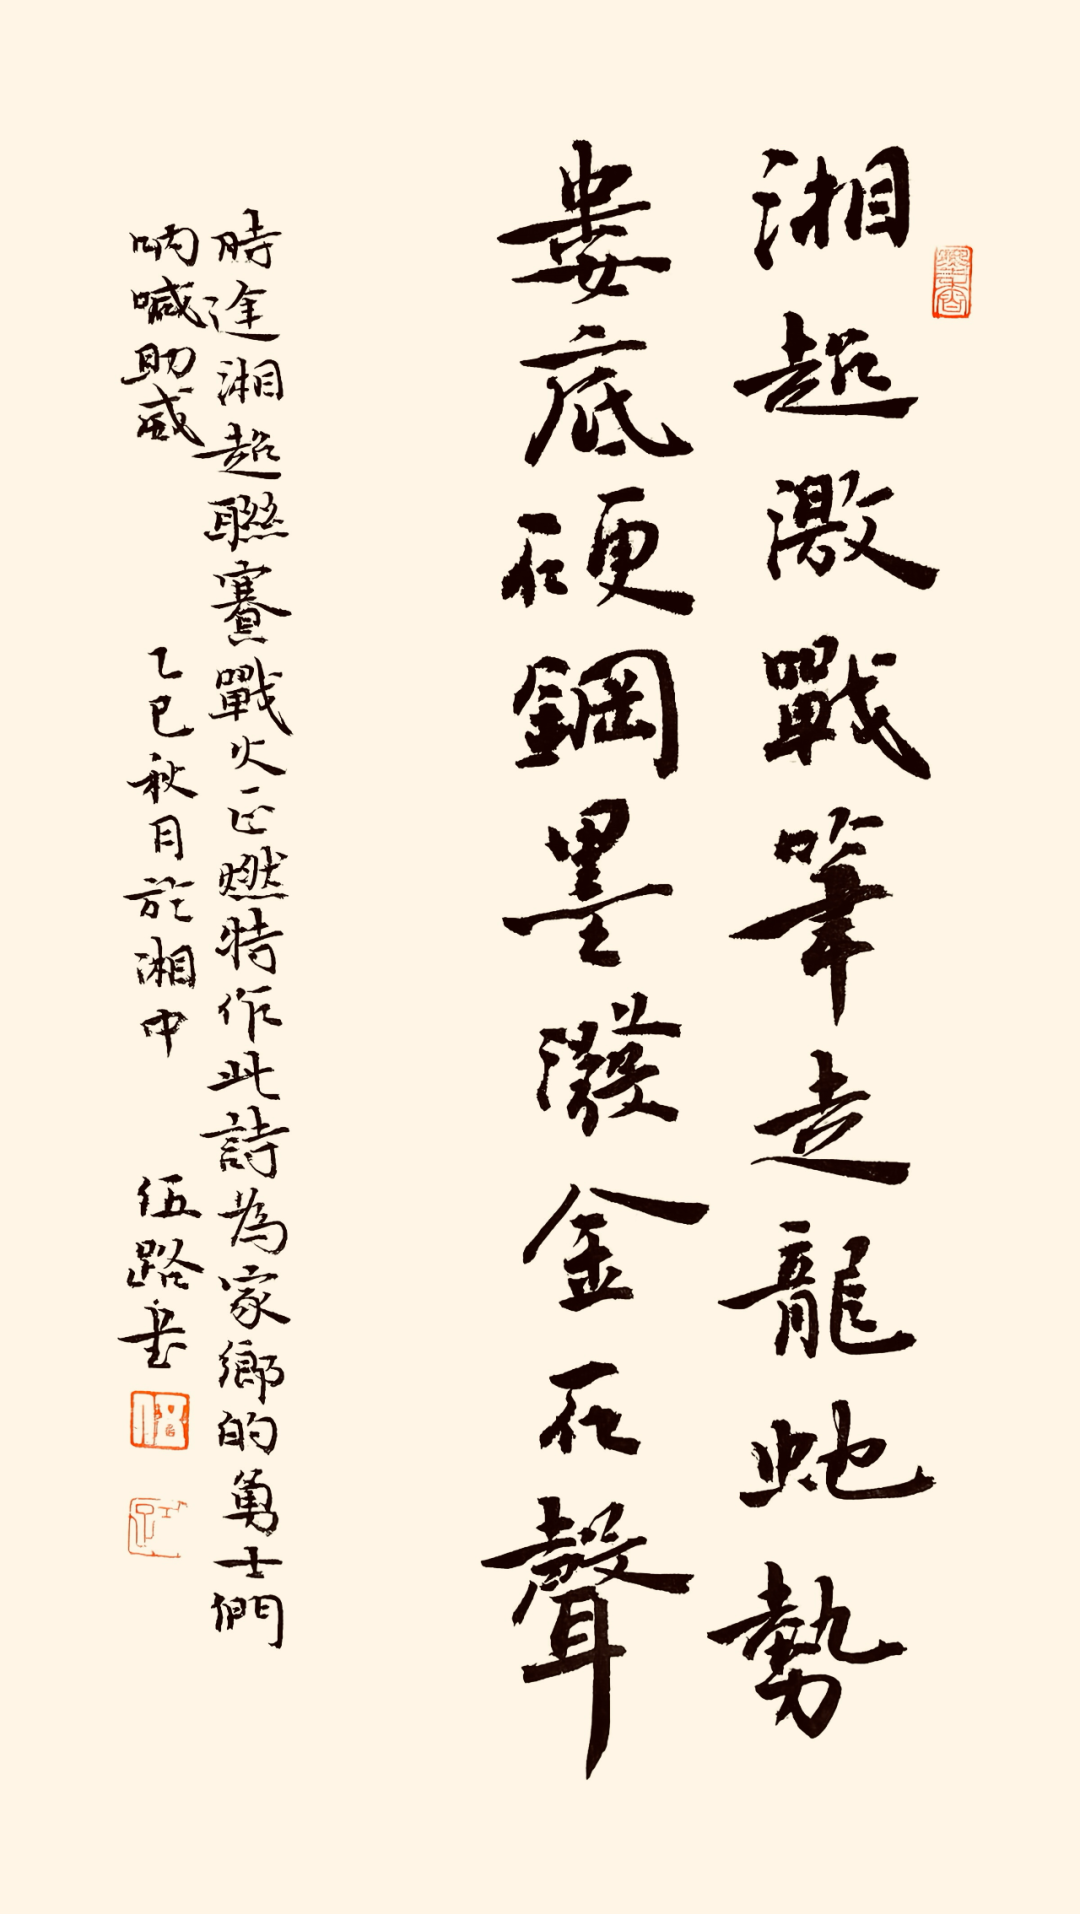 湘超激戰筆走龍蛇勢
婁底硬鋼墨潑金石聲
時逢湘超聯賽戰火正燃特作此詩為家鄉的勇士們
吶喊助威
乙巳秋月於湘中
伍路書
墨香